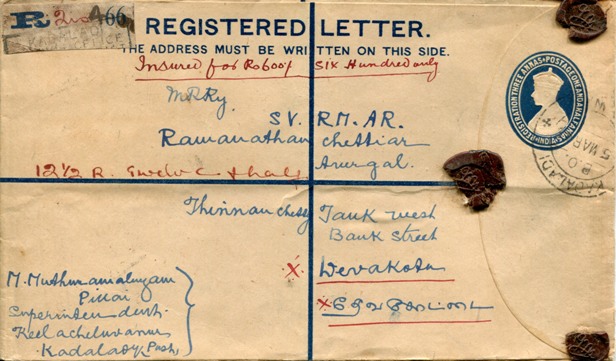 R 466
REGISTERED LETTER.
THE ADDRESS MUST BE WRITTEN ON THIS SIDE.
Insured for Rs 600/ Six Hundred only
REGISTRATION THREE ANNAS & POSTAGE ONE AND A HALF ANNAS
INDIA
MRRy.
SV. RM. AR.
Ramanathan Chettiar
Avergal.
12 1/2 R. Twelve & half
KADALADI
P.O.
5 MAR
Thinnan chetty Tank west
Bank Street
X. Devakotta
X தேவகோட்டை
M. Muthuramalingam
Pillai
Superintendent.
Keelacheluvanur
Kadalady Post,